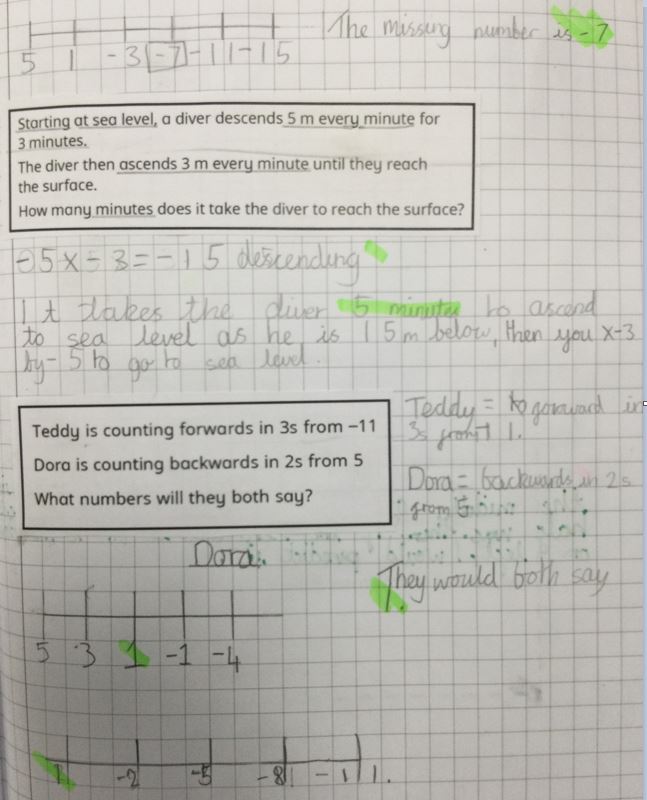 The missing number is -7
5 1 -3 -7 -11 -15
Starting at sea level, a diver descends 5 m every minute for
3 minutes.
The diver then ascends 3 m every minute until they reach
the surface.
How many minutes does it take the diver to reach the surface?
-5x-3=-15 descending
It takes the diver 5 minutes to ascend
to sea level as he is 15m below, then you x-3
by-5 to go to sea level.
Teddy is counting forwards in 3s from −11
Dora is counting backwards in 2s from 5
What numbers will they both say?
Teddy = to forward in
3s from 1 1.
Dora = backwards in 2s
from 5
Dora
They would both say
5 3 1 -1 -4
1 -2 -5 -8 -11.